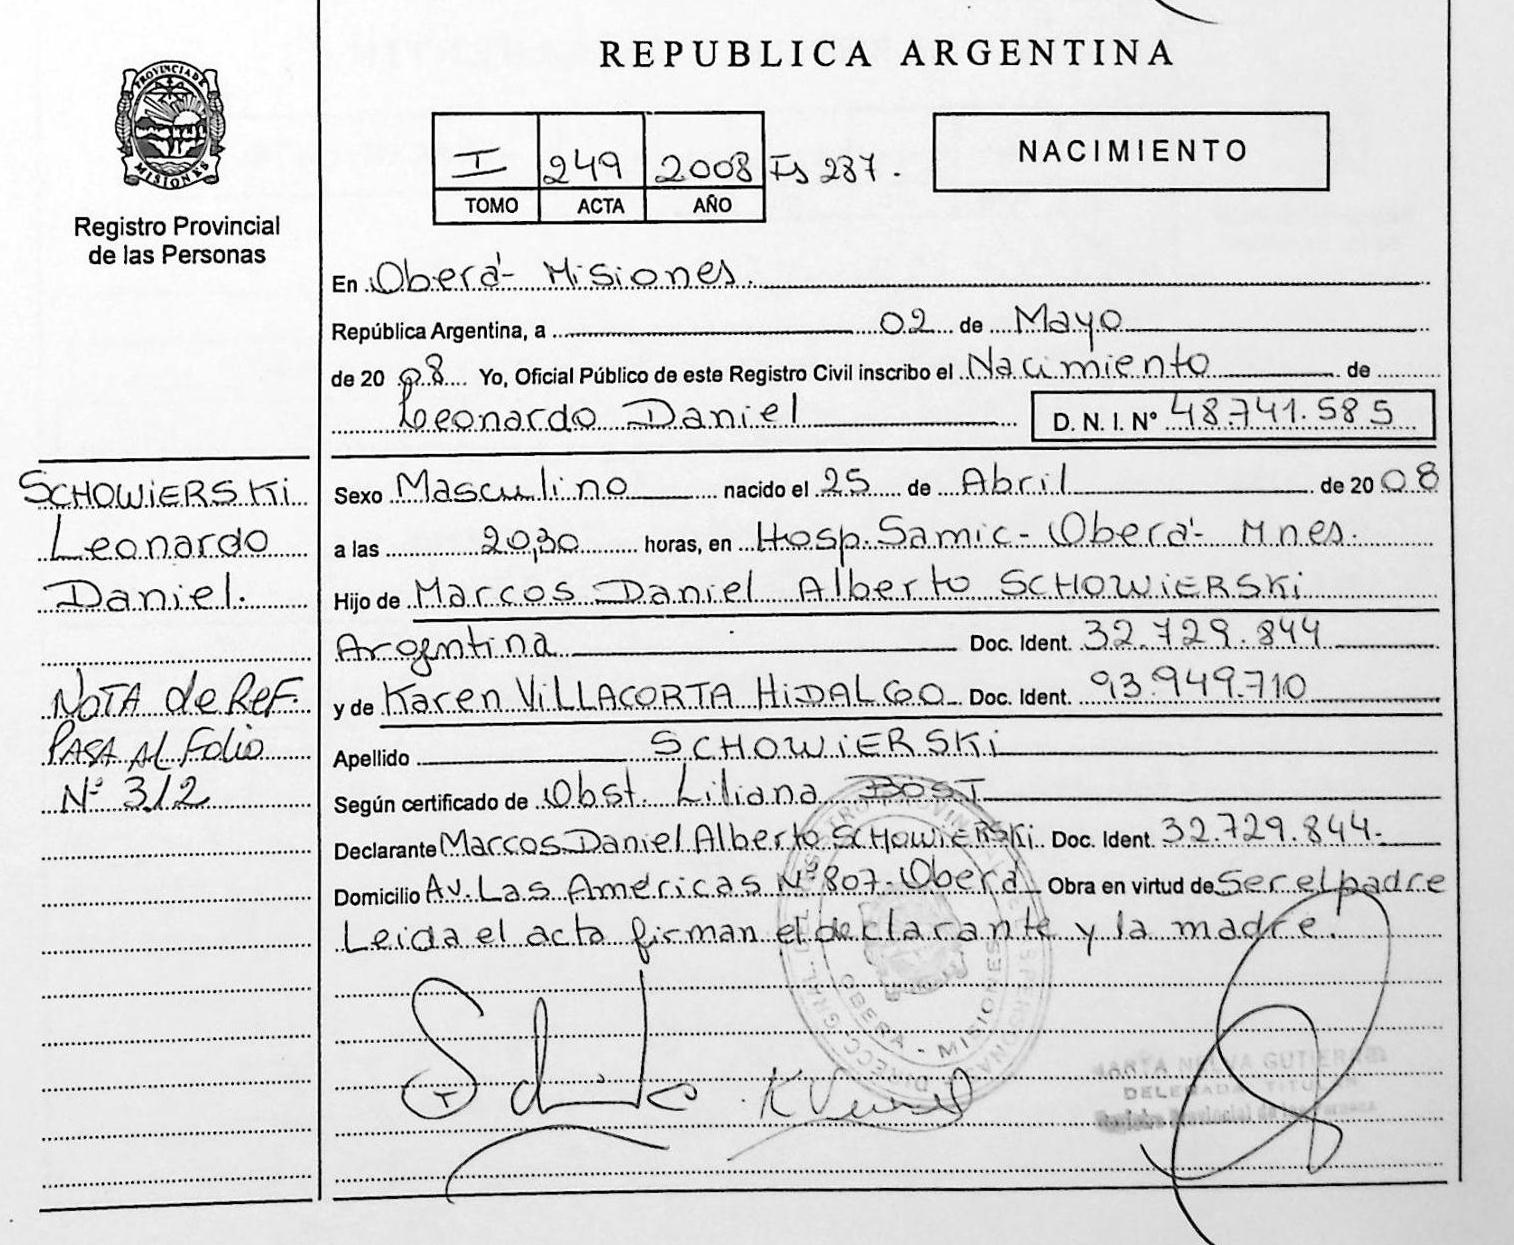 PROVINCIA DE
MISIONES
Registro Provincial
de las Personas
REPUBLICA ARGENTINA
I 249 2008 Fs 287.
TOMO ACTA AÑO
NACIMIENTO
En Oberá - Misiones.
República Argentina, a 02 de Mayo
de 20 08 Yo, Oficial Público de este Registro Civil inscribo el Nacimiento de
Leonardo Daniel D. N. I. N° 48.741.585
SCHOWiERSKi
Leonardo
Daniel.
NOTA de ReF.
PASA Al Folio
Nº 312
Sexo Masculino nacido el 25 de Abril de 20 08
a las 20,30 horas, en Hosp. Samic - Oberá - Mnes.
Hijo de Marcos Daniel Alberto SCHOWiERSKi
Argentina Doc. Ident. 32.729.844
y de Karen ViLLACORTA HiDALGO Doc. Ident. 93.949.710
Apellido SCHOWiERSKi
Según certificado de Obst. Liliana BOST
Declarante Marcos Daniel Alberto SCHOWiERSKi Doc. Ident. 32.729.844.
Domicilio Av. Las Américas Nº 807 - Oberá Obra en virtud de Ser el padre
Leida el acta firman el declarante y la madre.
OBERA - MISIONES
DELEGADA TITULAR
Registro Provincial de las Personas